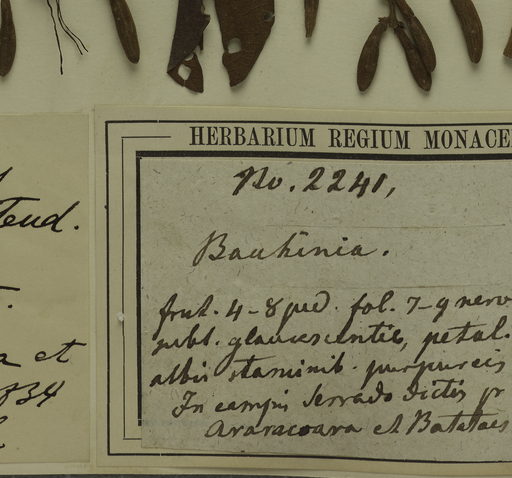 Teud.
a et
1834
HERBARIUM REGIUM MONACE
No. 2241,
Bauhinia.
frut. 4-8 ped. fol. 7-9 nerv
subt. glaucescentib, petal.
albis staminib. purpureis
In campis Serrado dictis pr
Araracoara et Batataes